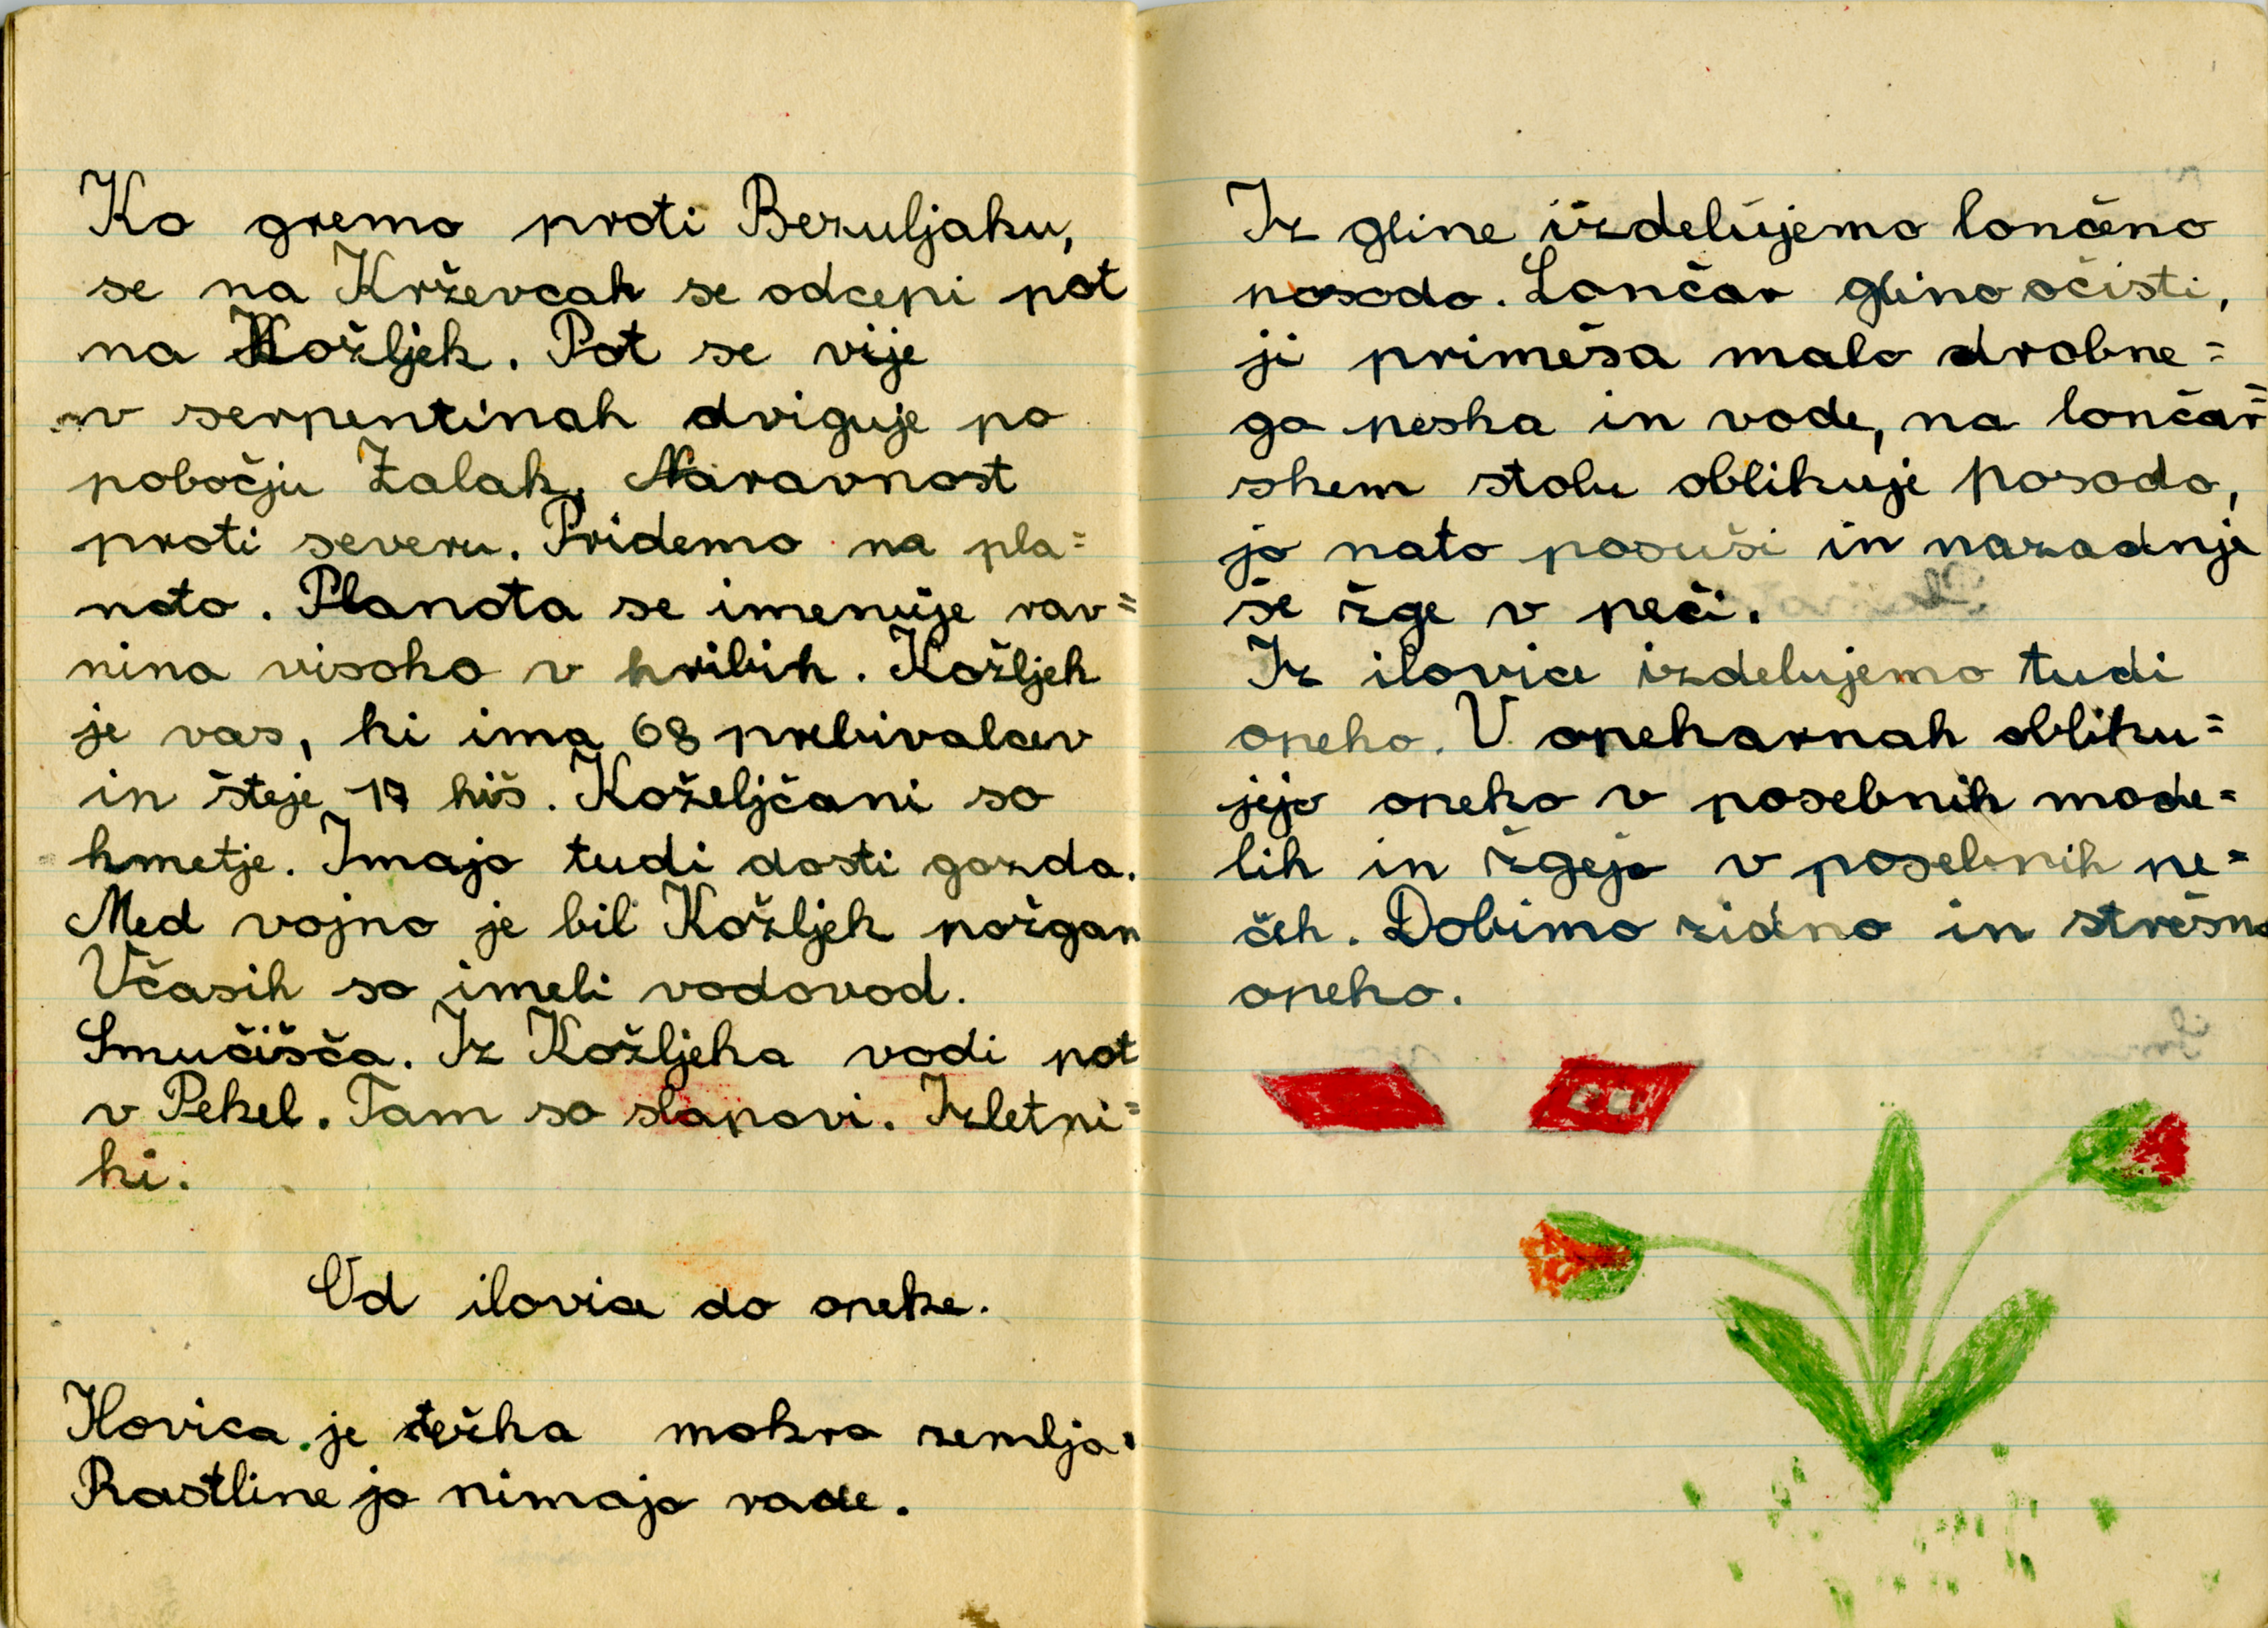 Ko gremo proti Bezuljaku,
se na Krževcah se odcepi pot
na Kožljek. Pot se vije
v serpentinah dviguje po
pobočju Zalak. Naravnost
proti severu. Pridemo na pla=
noto. Planota se imenuje rav=
nina visoko v hribih. Kožljek
je vas, ki ima 68 prebivalcev
in šteje 17 hiš. Koželjčani so
kmetje. Imajo tudi dosti gozda.
Med vojno je bil Kožljek požgan
Včasih so imeli vodovod.
Smučišča. Iz Kožljeka vodi pot
v Pekel. Tam so slapovi. Izletni=
ki.
Od ilovice do opeke.
Ilovica je težka mokra zemlja.
Rastline jo nimajo rade.
Iz gline izdelujemo lončeno
posodo. Lončar glino očisti,
ji primeša malo drobne=
ga peska in vode, na lončar=
skem stolu oblikuje posodo,
jo nato posuši in nazadnje
še žge v peči.
Iz ilovice izdelujemo tudi
opeko. V opekarnah obliku=
jejo opeko v posebnih mode=
lih in žgejo v posebnih pe=
čeh. Dobimo zidno in strešno
opeko.